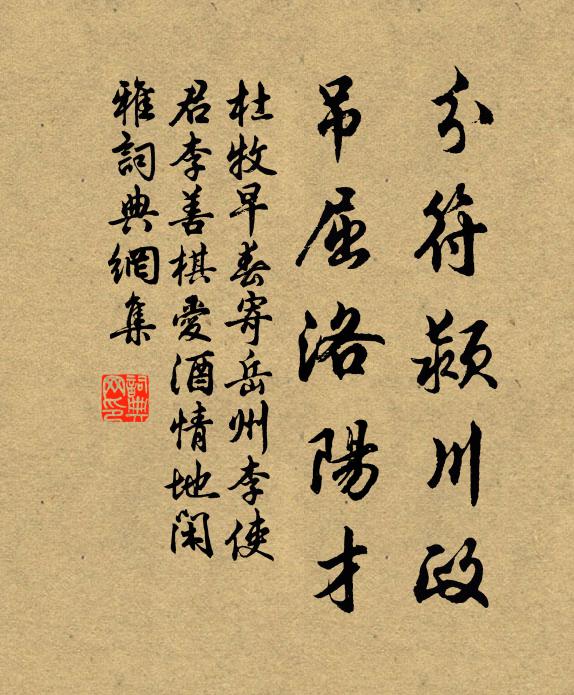 分符潁川政
吊屈洛陽才
杜牧早春寄岳州李使
君李善棋愛酒情地閑
雅詞典網集
詞典網印